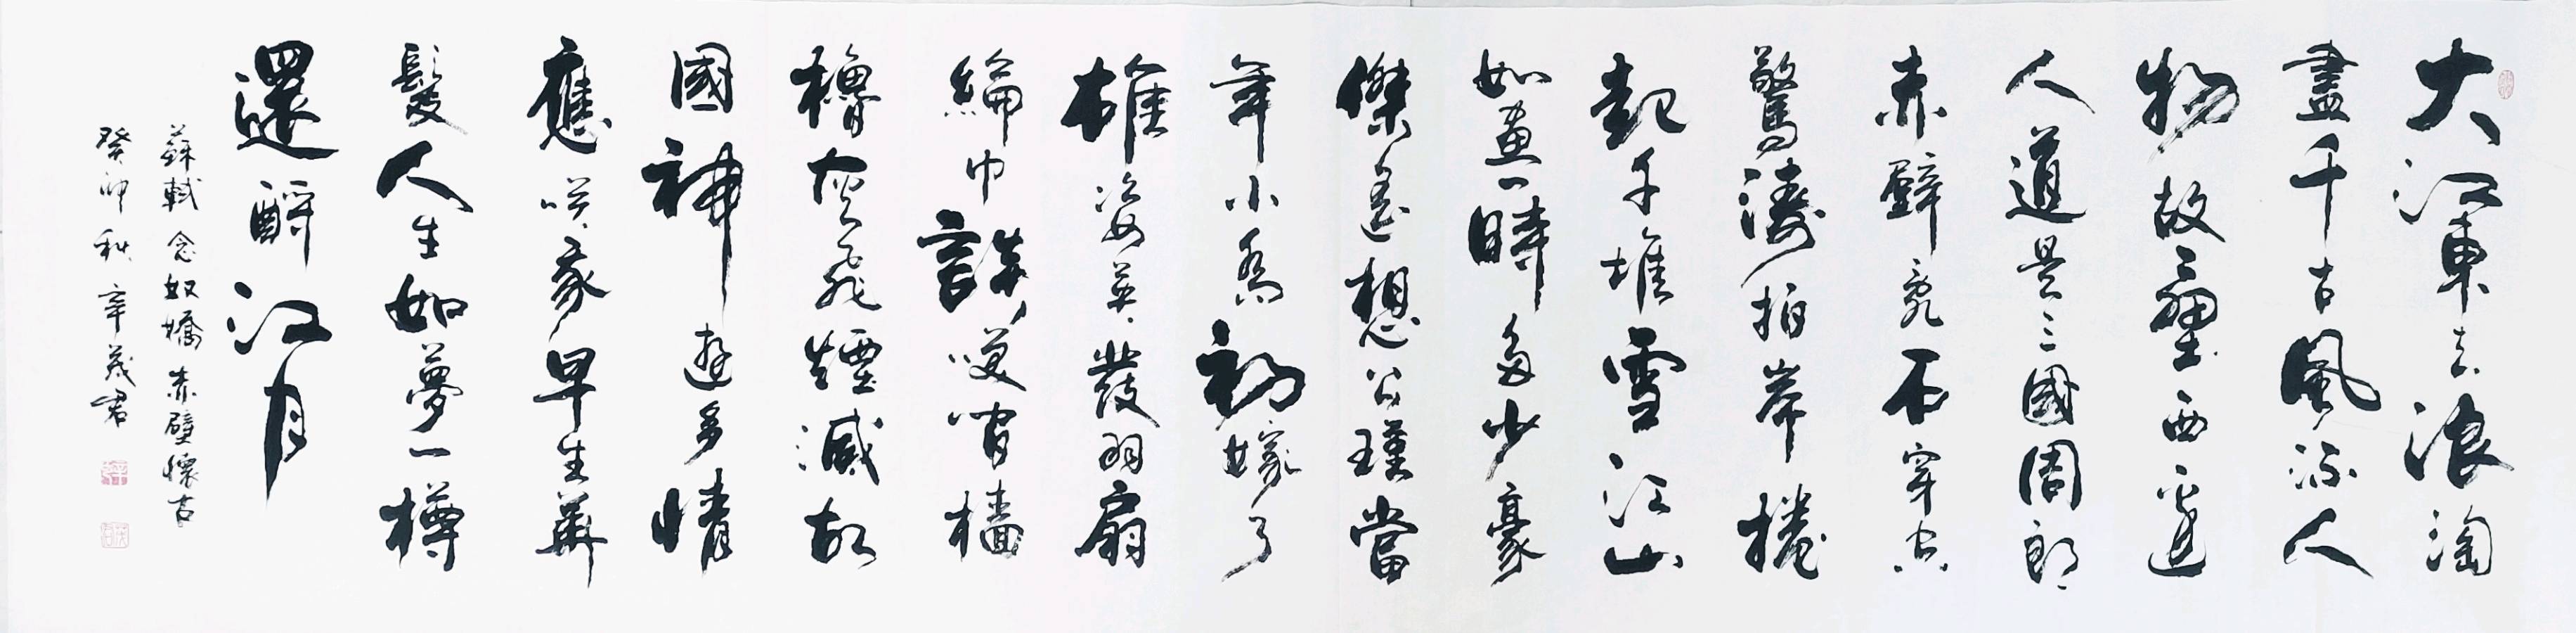 大江東去浪淘
盡千古風流人
物故壘西邊
人道是三國周郎
赤壁亂石穿空
驚濤拍岸捲
起千堆雪江山
如畫一時多少豪
傑遙想公瑾當
年小喬初嫁了
雄姿英發羽扇
綸巾談笑間檣
櫓灰飛煙滅故
國神遊多情
應笑我早生華
髮人生如夢一樽
還酹江月
蘇軾念奴嬌赤壁懷古
癸卯秋辛茂君